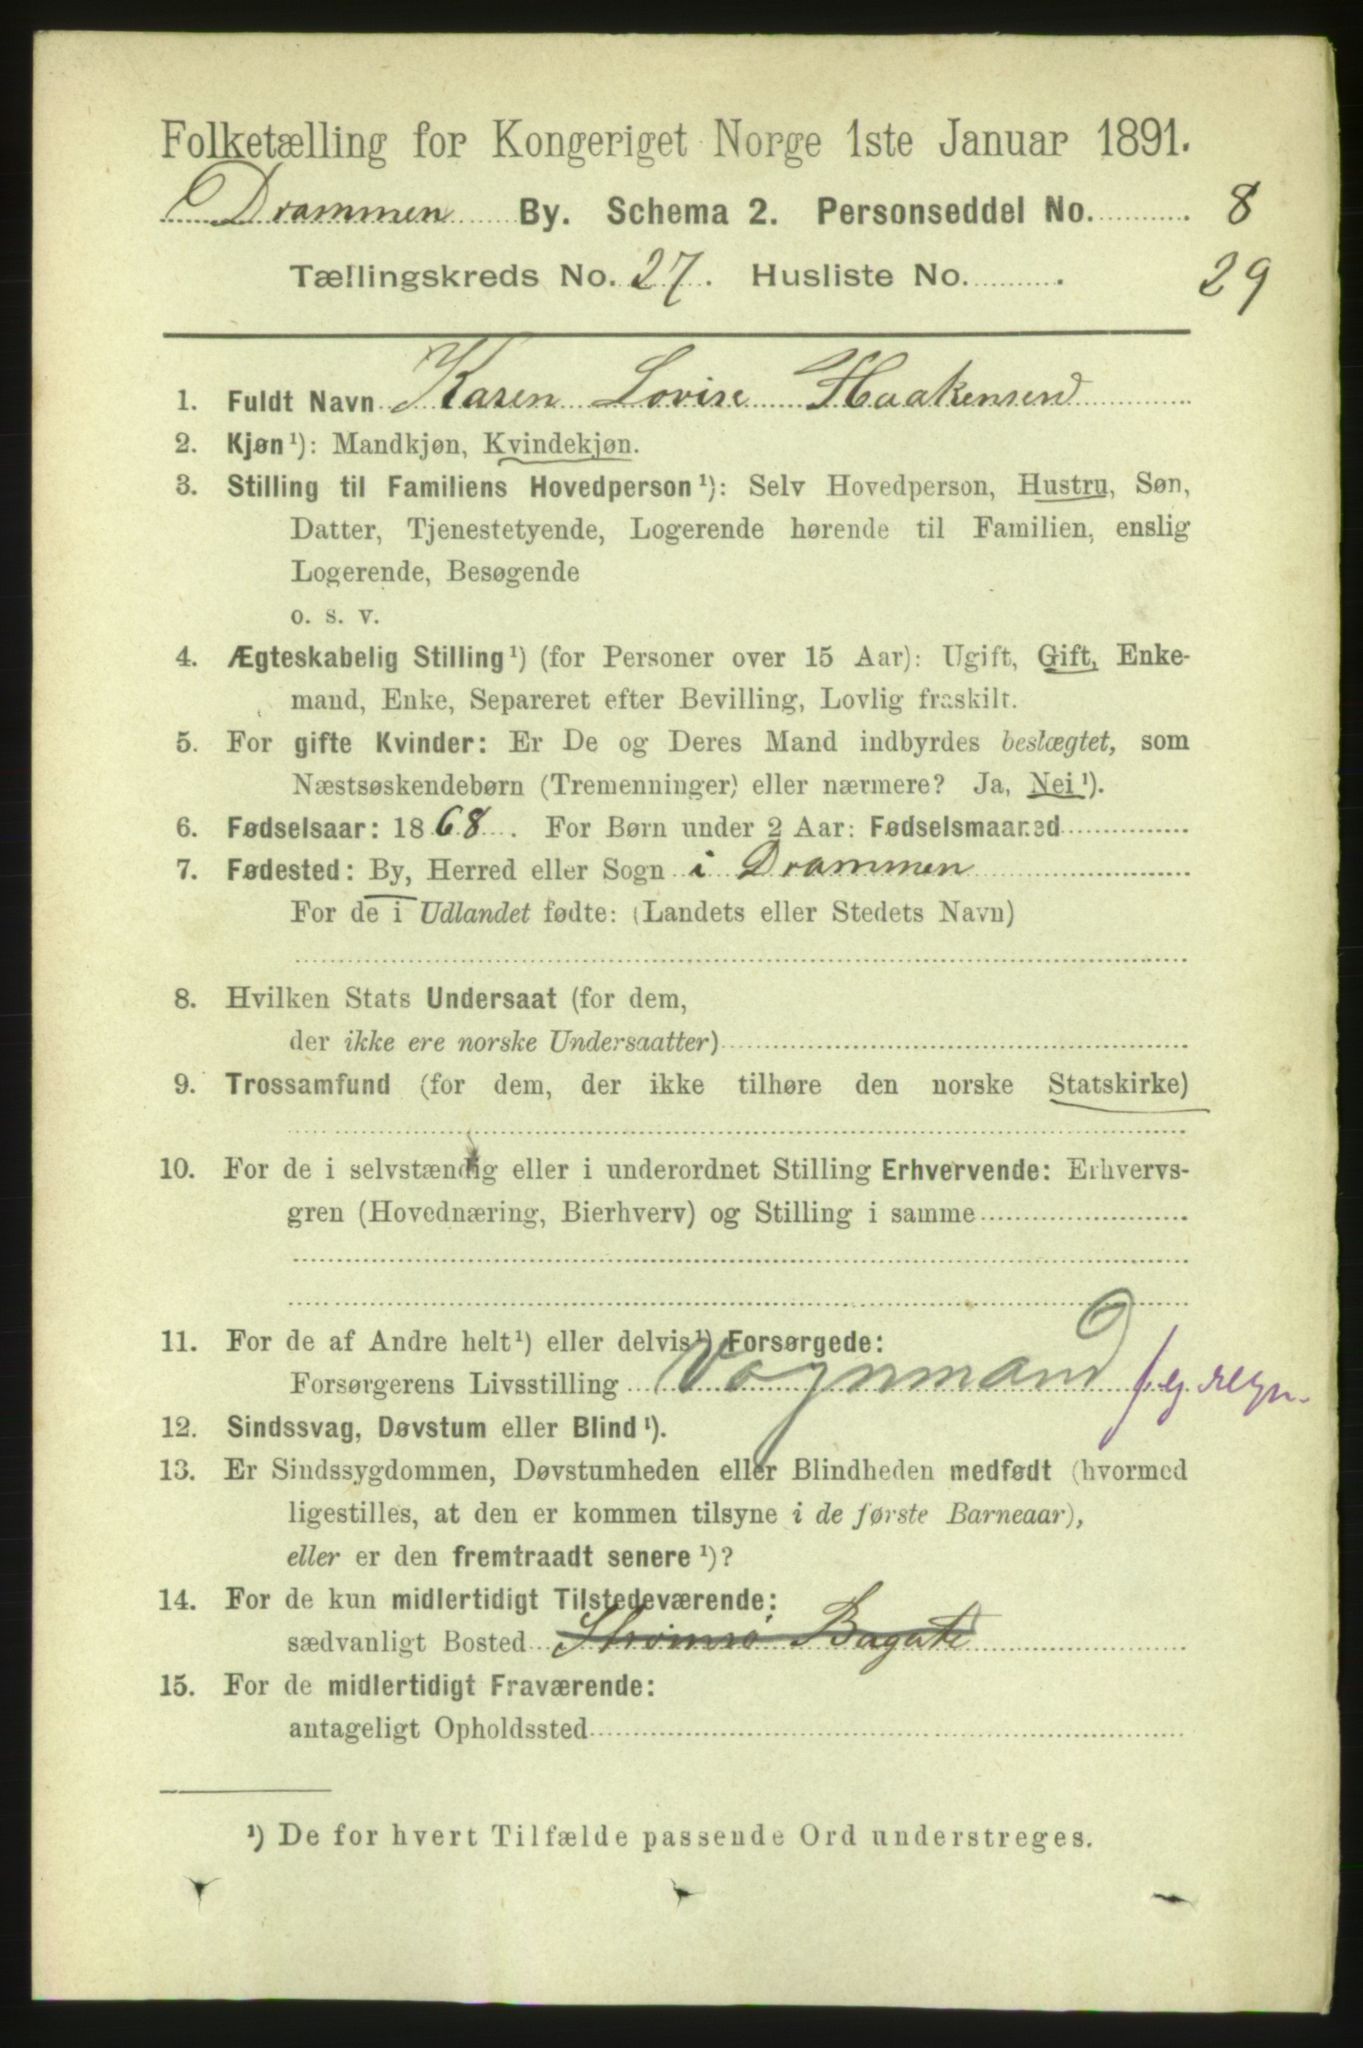 Folketælling for Kongeriget Norge 1ste Januar 1891.
Drammen By. Schema 2. Personseddel No. 8
Tællingskreds No. 27. Husliste No. 29
1. Fuldt Navn Karen Lovise Haakensen
2. Kjøn ¹): Mandkjøn, Kvindekjøn.
3. Stilling til Familiens Hovedperson ¹): Selv Hovedperson, Hustru, Søn,
Datter, Tjenestetyende, Logerende hørende til Familien, enslig
Logerende, Besøgende
o. s. v.
4. Ægteskabelig Stilling ¹) (for Personer over 15 Aar): Ugift, Gift, Enke-
mand, Enke, Separeret efter Bevilling, Lovlig fraskilt.
5. For gifte Kvinder: Er De og Deres Mand indbyrdes beslægtet, som
Næstsøskendebørn (Tremenninger) eller nærmere? Ja, Nei ¹).
6. Fødselsaar: 1868. For Børn under 2 Aar: Fødselsmaaned
7. Fødested: By, Herred eller Sogn i Drammen
For de i Udlandet fødte: (Landets eller Stedets Navn)
8. Hvilken Stats Undersaat (for dem,
der ikke ere norske Undersaatter)
9. Trossamfund (for dem, der ikke tilhøre den norske Statskirke)
10. For de i selvstændig eller i underordnet Stilling Erhvervende: Erhvervs-
gren (Hovednæring, Bierhverv) og Stilling i samme
11. For de af Andre helt ¹) eller delvis ¹) Forsørgede:
Forsørgerens Livsstilling Vognmand f. eg. regn.
12. Sindssvag, Døvstum eller Blind ¹).
13. Er Sindssygdommen, Døvstumheden eller Blindheden medfødt (hvormed
ligestilles, at den er kommen tilsyne i de første Barneaar),
eller er den fremtraadt senere ¹)?
14. For de kun midlertidigt Tilstedeværende:
sædvanligt Bosted Strømsø
15. For de midlertidigt Fraværende:
antageligt Opholdssted
¹) De for hvert Tilfælde passende Ord understreges.